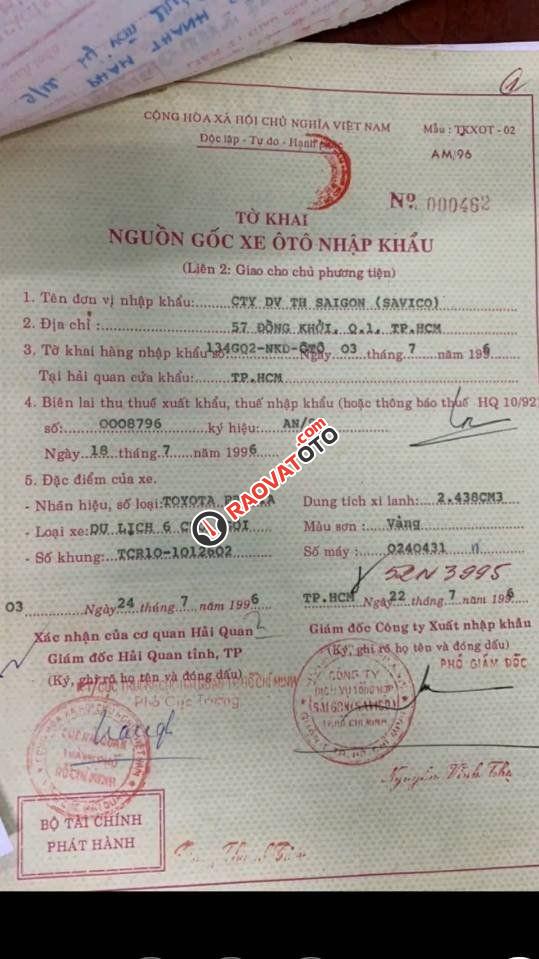 CỘNG HÒA XÃ HỘI CHỦ NGHĨA VIỆT NAM
Độc lập - Tự do - Hạnh
Mẫu : TKXOT - 02
AM/96
Nº 000462
TỜ KHAI
NGUỒN GỐC XE ÔTÔ NHẬP KHẨU
(Liên 2: Giao cho chủ phương tiện)
1. Tên đơn vị nhập khẩu: CTY DV TH SAIGON (SAVICO)
2. Địa chỉ : 57 ĐỒNG KHỞI, Q.1, TP.HCM
3. Tờ khai hàng nhập khẩu số: 134GQ2-NKD-ÔTÔ Ngày 03 tháng 7 năm 1996
Tại hải quan cửa khẩu: TP.HCM
4. Biên lai thu thuế xuất khẩu, thuế nhập khẩu (hoặc thông báo thuế HQ 10/92
số: 0008796 ký hiệu: AN/
Ngày 18 tháng 7 năm 1996
5. Đặc điểm của xe.
- Nhãn hiệu, số loại: TOYOTA
Dung tích xi lanh: 2.438CM3
- Loại xe: DU LỊCH 6
Màu sơn : Vàng
- Số khung: TCR10-1012602
Số máy : 0240431
52N 3995
RAOVATOTO
.com
03 Ngày 24 tháng 7 năm 1996
TP.HCM Ngày 22 tháng 7 năm 1996
Xác nhận của cơ quan Hải Quan
Giám đốc Hải Quan tỉnh, TP
(Ký, ghi rõ họ tên và đóng dấu)
Giám đốc Công ty Xuất nhập khẩu
(Ký, ghi rõ họ tên và đóng dấu)
PHÓ GIÁM ĐỐC
Phó Cục Trưởng
CÔNG TY
DỊCH VỤ TỔNG HỢP
SAIGON (SAVICO)
HỒ CHÍ MINH
BỘ TÀI CHÍNH
PHÁT HÀNH